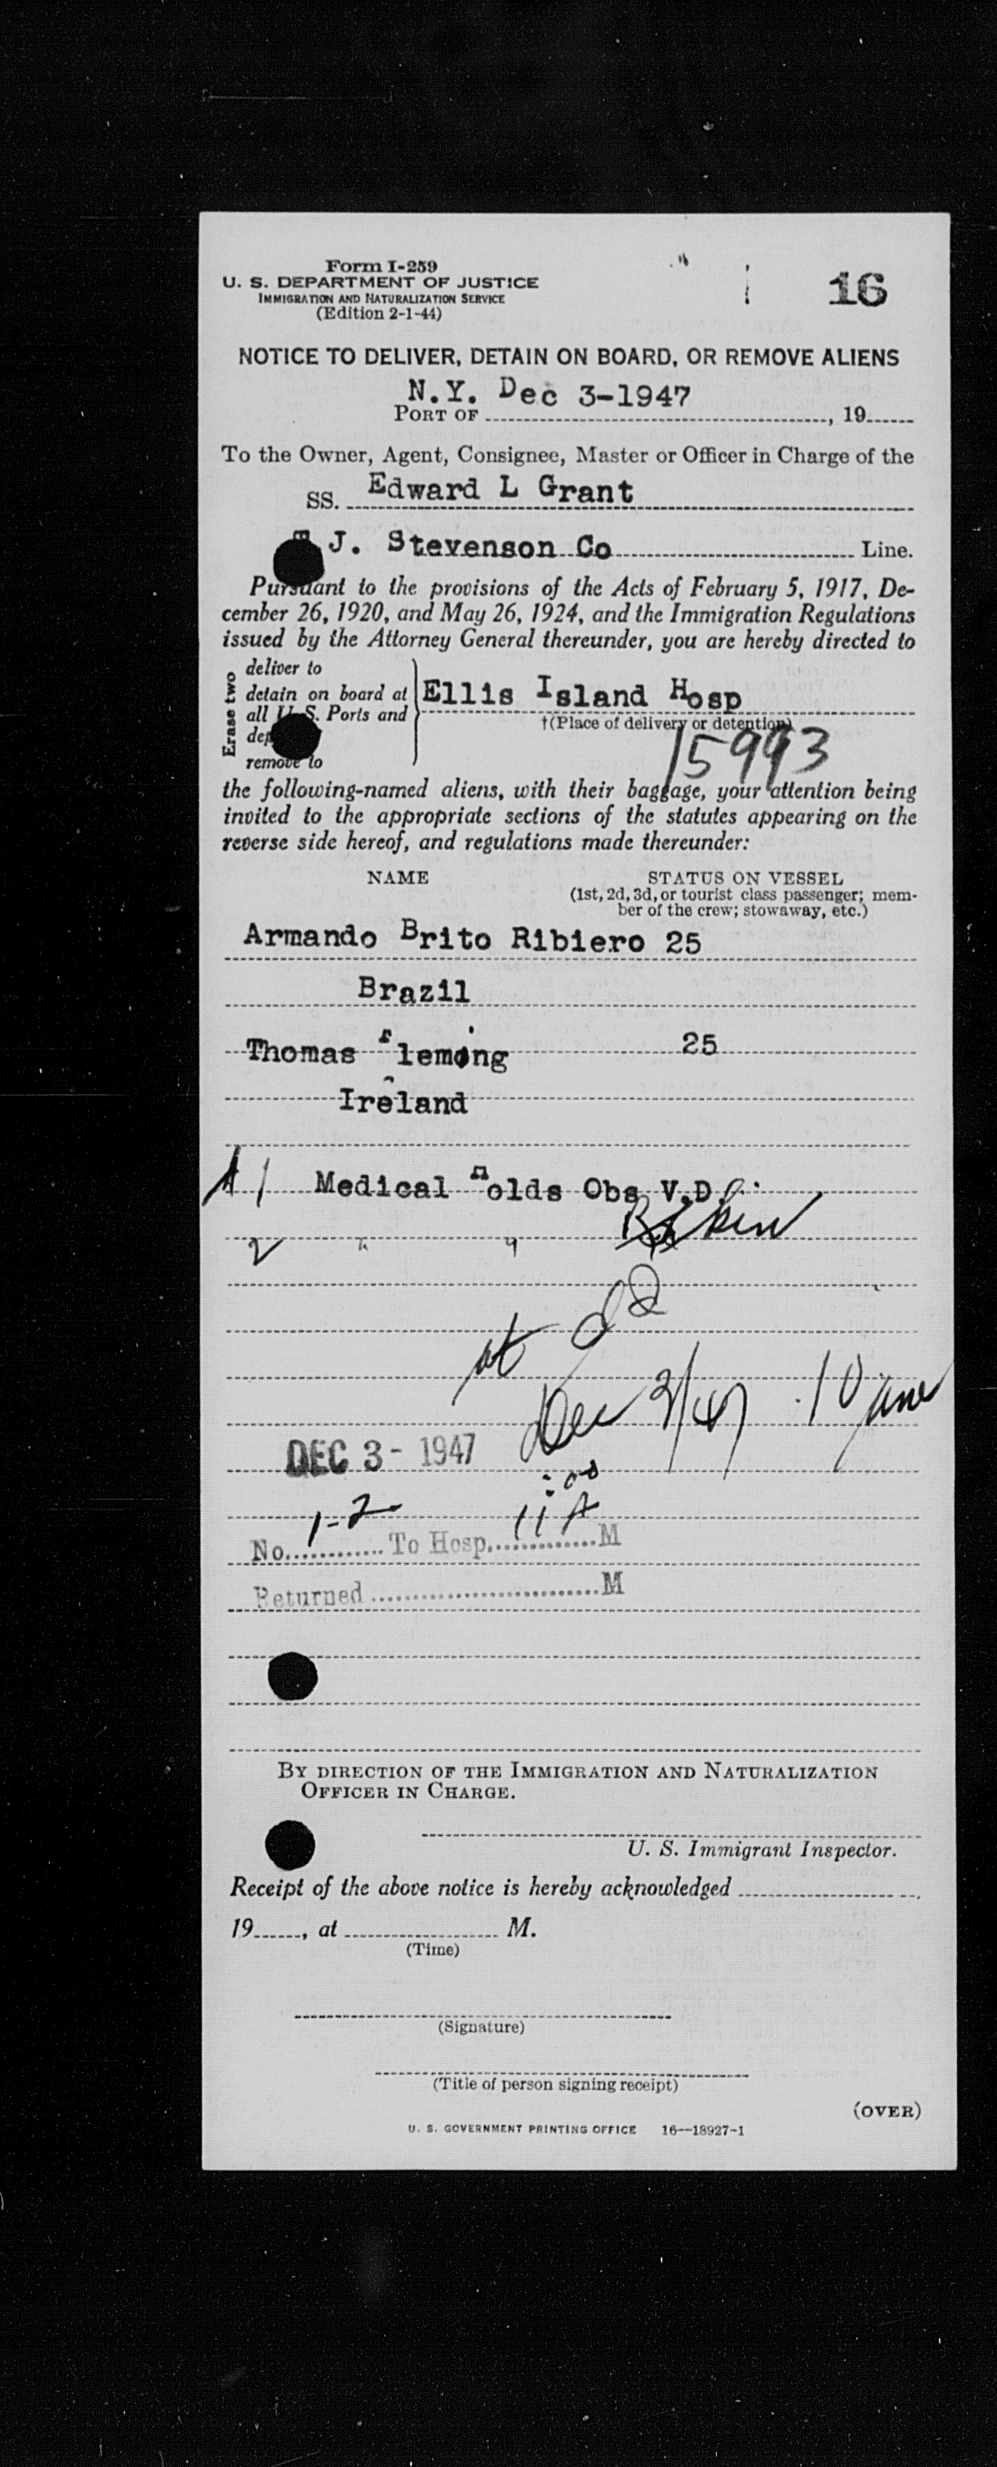 Form I-259
U. S. DEPARTMENT OF JUSTICE
IMMIGRATION AND NATURALIZATION SERVICE
(Edition 2-1-44)
16
NOTICE TO DELIVER, DETAIN ON BOARD, OR REMOVE ALIENS
N.Y. Dec 3-1947
PORT OF , 19
To the Owner, Agent, Consignee, Master or Officer in Charge of the
SS. Edward L Grant
J. Stevenson Co Line.
Pursuant to the provisions of the Acts of February 5, 1917, De-
cember 26, 1920, and May 26, 1924, and the Immigration Regulations
issued by the Attorney General thereunder, you are hereby directed to
Erase two
deliver to
detain on board at
all U. S. Ports and
remove to
Ellis Island Hosp
†(Place of delivery or detention)
15993
the following-named aliens, with their baggage, your attention being
invited to the appropriate sections of the statutes appearing on the
reverse side hereof, and regulations made thereunder:
NAME STATUS ON VESSEL
(1st, 2d, 3d, or tourist class passenger; mem-
ber of the crew; stowaway, etc.)
Armando Brito Ribiero 25
Brazil
Thomas Fleming 25
Ireland
1 Medical Holds Obs V.D.
2 " "
at
Dec 3/47
DEC 3 - 1947
No. 1-2 To Hosp. 11:00 A M
Returned M
BY DIRECTION OF THE IMMIGRATION AND NATURALIZATION
OFFICER IN CHARGE.
U. S. Immigrant Inspector.
Receipt of the above notice is hereby acknowledged
19 , at M.
(Time)
(Signature)
(Title of person signing receipt)
(OVER)
U. S. GOVERNMENT PRINTING OFFICE 16—18927-1